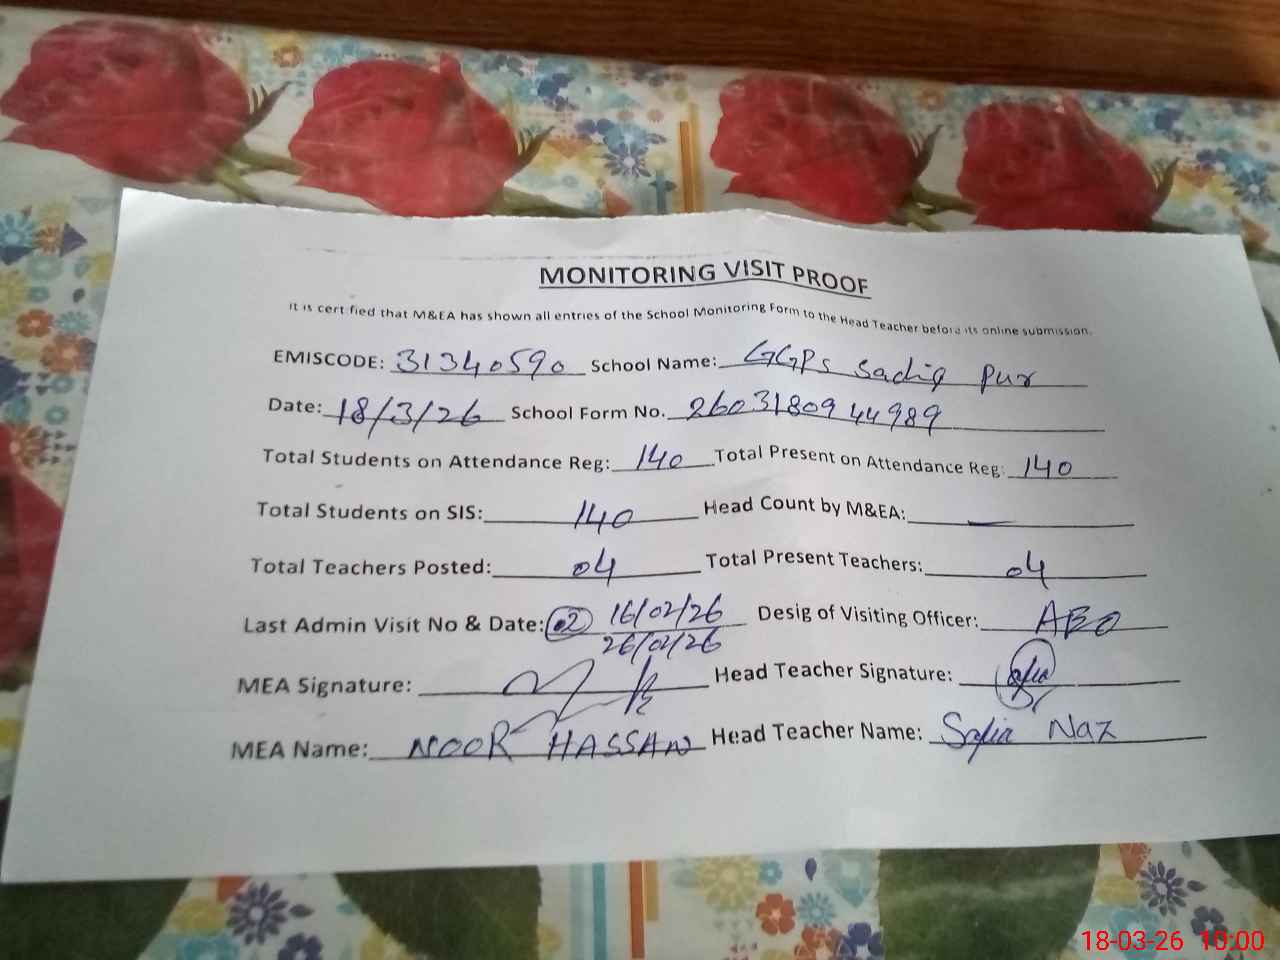 MONITORING VISIT PROOF
It is certified that M&EA has shown all entries of the School Monitoring Form to the Head Teacher before its online submission.
EMISCODE: 31340590 School Name: GGPS Sadiq Pur
Date: 18/3/26 School Form No. 2603180944989
Total Students on Attendance Reg: 140 Total Present on Attendance Reg: 140
Total Students on SIS: 140 Head Count by M&EA: —
Total Teachers Posted: 04 Total Present Teachers: 04
Last Admin Visit No & Date: 02 16/02/26 Desig of Visiting Officer: AEO
26/02/26
MEA Signature: Head Teacher Signature: Safia
MEA Name: NOOR HASSAN Head Teacher Name: Safia Naz
18-03-26 10:00